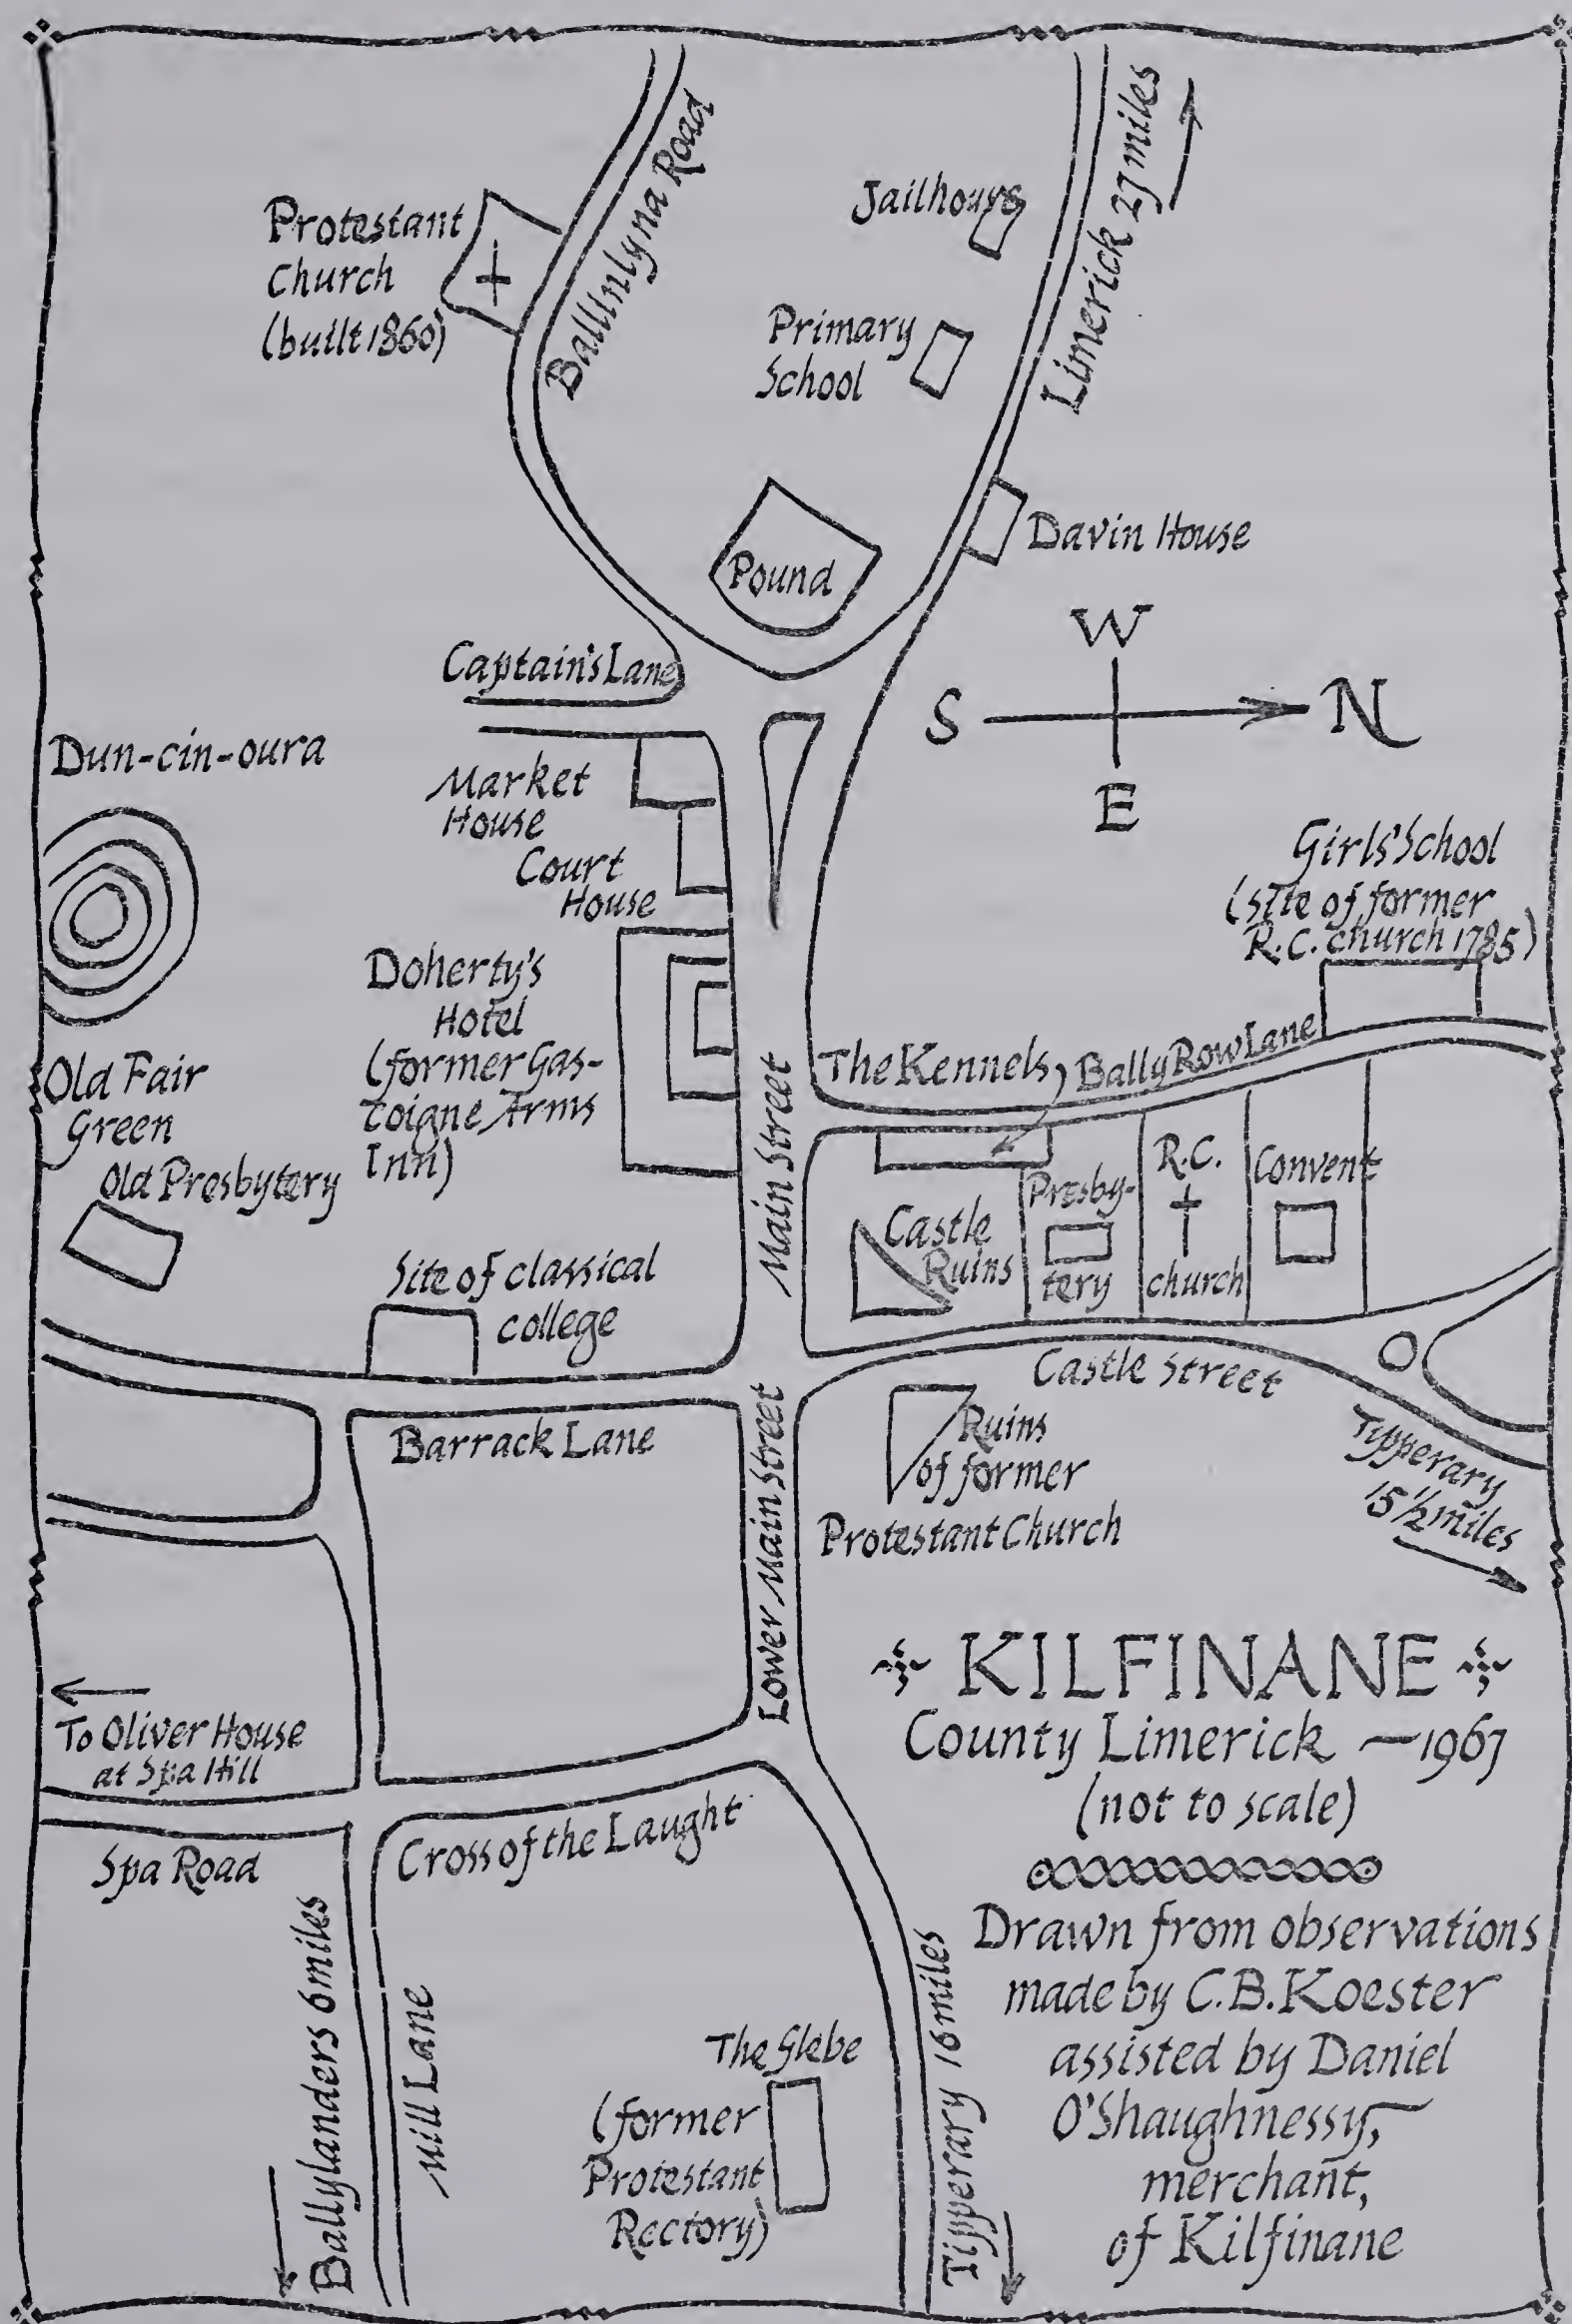 Ballinlyna Road
Limerick 27 miles
Jailhouse
Protestant
Church
(built 1860)
Primary
School
Davin House
Pound
W
S
N
E
Captain's Lane
Dun-cin-oura
Market
House
Court
House
Girls' School
(site of former
R.C. church 1785)
Doherty's
Hotel
(former Gas-
coigne Arms
Inn)
Old Fair
Green
Old Presbytery
Main Street
The Kennels,
Bally Row Lane
Castle
Ruins
Presby-
tery
R.C.
church
Convent
Site of classical
college
Castle Street
Barrack Lane
Lower Main Street
Ruins
of former
Protestant Church
Tipperary
15½ miles
To Oliver House
at Spa Hill
Spa Road
Cross of the Laught
Ballylanders 6 miles
Mill Lane
The Glebe
(former
Protestant
Rectory)
Tipperary 16 miles
KILFINANE
County Limerick — 1967
(not to scale)
Drawn from observations
made by C.B. Koester
assisted by Daniel
O'Shaughnessy,
merchant,
of Kilfinane